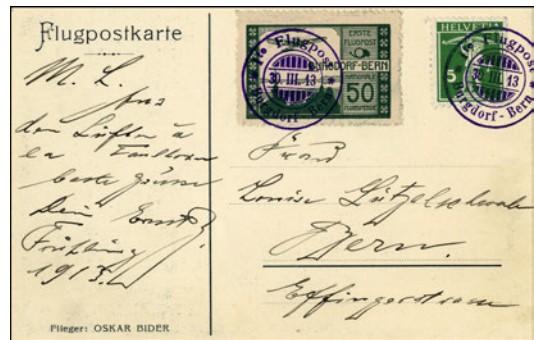 Flugpostkarte
M. L.
Aus
den Lüften à
la
beste Grüsse
Dein Ernst
Frühling
1913.
Flieger: OSKAR BIDER
ERSTE
FLUGPOST
BURGDORF-BERN
NATIONALE
50
FLUGSPENDE
1e Flugpost
30. III. 13
Burgdorf - Bern
HELVETIA
5
1e Flugpost
30. III. 13
Burgdorf - Bern
Frau
Louise Lützelschwab
Bern.
Effingerstrasse